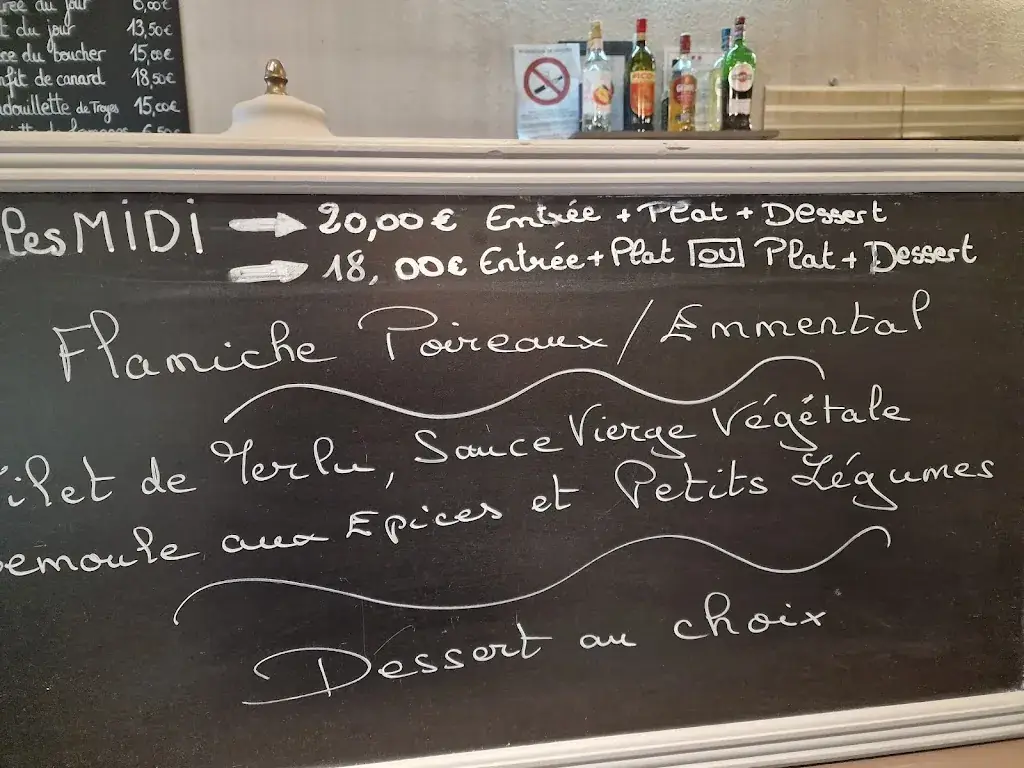 ée du jour 6,00€
t du jour 13,50€
ce du boucher 15,00€
nfit de canard 18,50€
ndouillette de Troyes 15,00€
6,50€
PICON
les MiDi → 20,00€ Entrée + Plat + Dessert
→ 18,00€ Entrée + Plat OU Plat + Dessert
Flamiche Poireaux / Emmental
ilet de Merlu, Sauce Vierge Végétale
emoule aux Epices et Petits Légumes
Dessert au choix